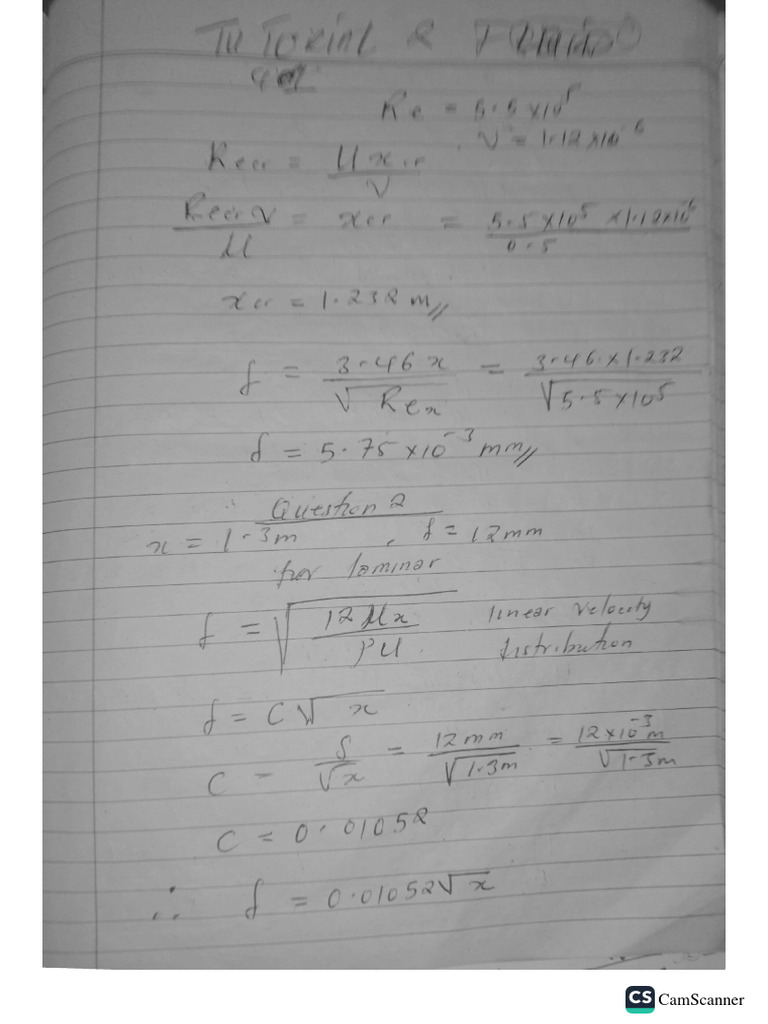 TUTORIAL 2 FLUID
Re = 5.5 x 10⁵
V = 1.12 x 10⁻⁶
Recr = U x cr / V
Recr V / U = x cr = 5.5 x 10⁵ x 1.12 x 10⁻⁶ / 0.5
x cr = 1.232 m //
δ = 3.46 x / √Re x = 3.46 x 1.232 / √5.5 x 10⁵
δ = 5.75 x 10⁻³ mm //
Question 2
x = 1.3m , δ = 12mm
for laminar
δ = √12 μx / ρU linear velocity
distribution
δ = C√x
C = δ / √x = 12mm / √1.3m = 12 x 10⁻³ m / √1.3m
C = 0.01052
∴ δ = 0.01052√x
CS CamScanner